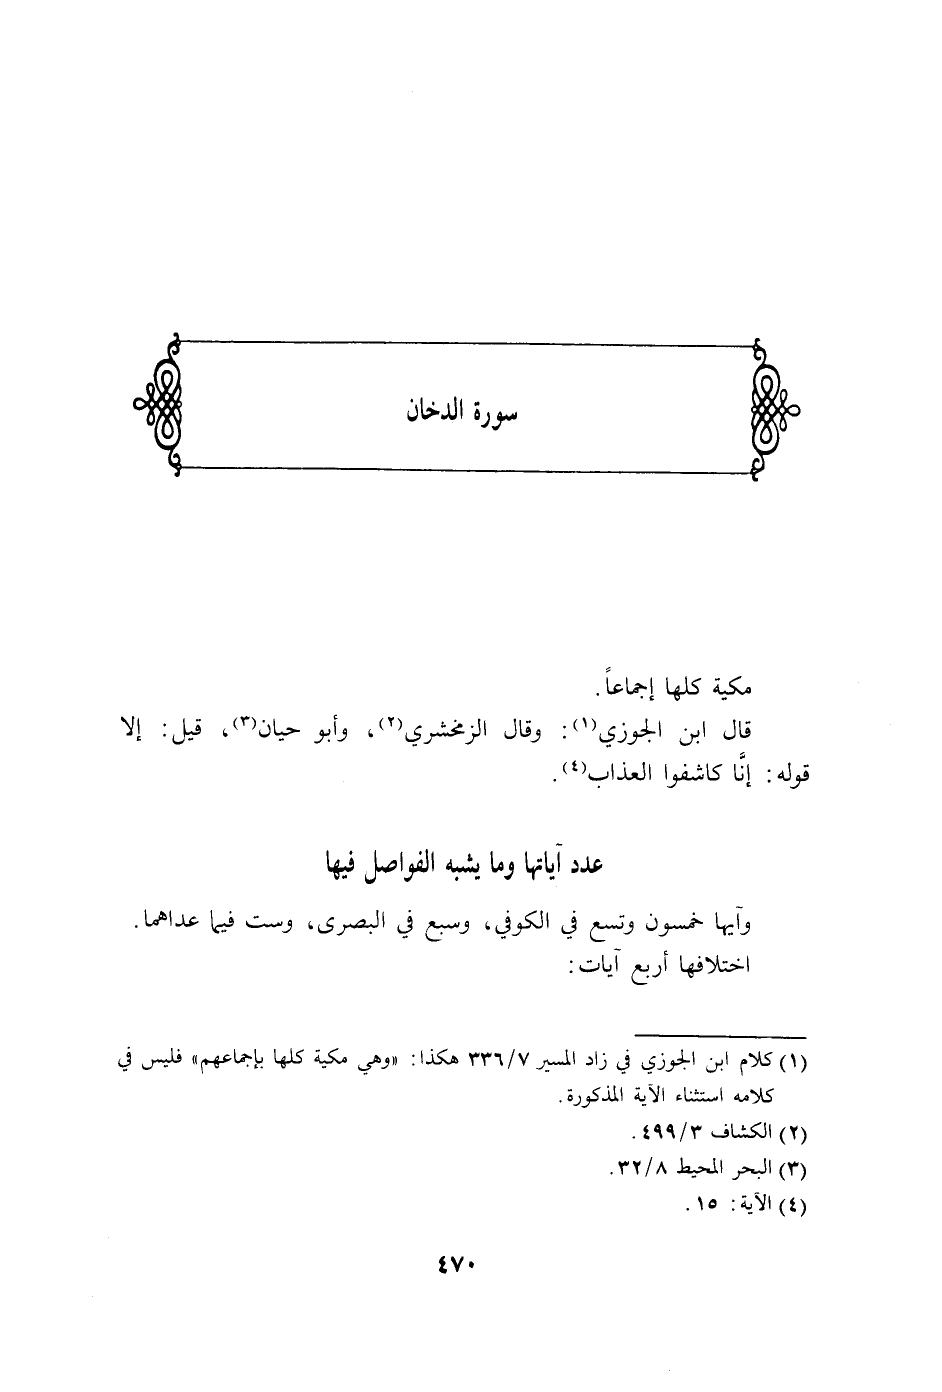 سورة الدخان
مكية كلها إجماعاً.
قال ابن الجوزي(١): وقال الزمخشري(٢)، وأبو حيان(٣)، قيل: إلا
قوله: إنَّا كاشفوا العذاب(٤).
عدد آياتها وما يشبه الفواصل فيها
وآيها خمسون وتسع في الكوفي، وسبع في البصرى، وست فيما عداهما.
اختلافها أربع آيات:
(١) كلام ابن الجوزي في زاد المسير ٣٣٦/٧ هكذا: «وهي مكية كلها بإجماعهم» فليس في
كلامه استثناء الآية المذكورة.
(٢) الكشاف ٤٩٩/٣.
(٣) البحر المحيط ٣٢/٨.
(٤) الآية: ١٥.
٤٧٠